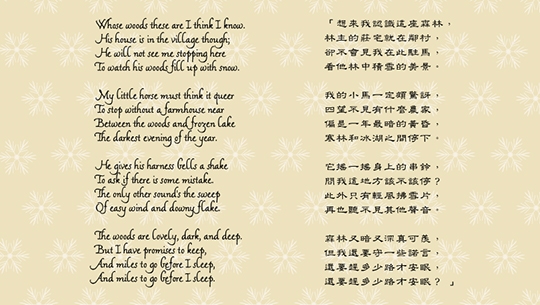 Whose woods these are I think I know.
His house is in the village though;
He will not see me stopping here
To watch his woods fill up with snow.
My little horse must think it queer
To stop without a farmhouse near
Between the woods and frozen lake
The darkest evening of the year.
He gives his harness bells a shake
To ask if there is some mistake.
The only other sound's the sweep
Of easy wind and downy flake.
The woods are lovely, dark, and deep.
But I have promises to keep,
And miles to go before I sleep,
And miles to go before I sleep.
「想來我認識這座森林，
林主的莊宅就在鄰村，
卻不會見我在此駐馬，
看他林中積雪的美景。
我的小馬一定頗驚訝，
四望不見有什麼農家，
偏是一年最暗的黃昏，
寒林和冰湖之間停下。
它搖一搖身上的串鈴，
問我這地方該不該停？
此外只有輕風拂雪片，
再也聽不見其他聲音。
森林又暗又深真可羨，
但我還要守一些諾言，
還要趕多少路才安眠，
還要趕多少路才安眠？」